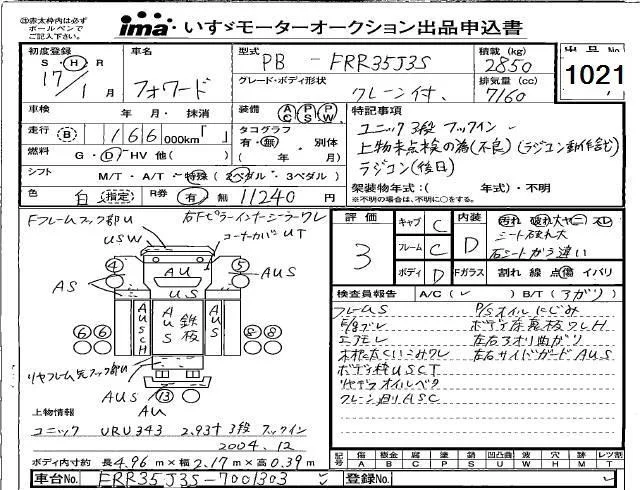 ㊟赤太枠内は必ず
ボールペンで
ご記入下さい。
ima いすゞモーターオークション出品申込書
初度登録 S・H・R 17/1月
車名 フォワード
型式 PB - FRR35J3S
積載(kg) 2850
出品No. 1021
グレード・ボディ形状 クレーン付、
排気量(cc) 7160
車検 年・月・抹消
装備 AC PS PW
特記事項
ユニック3段フックイン
走行 B 166 000km「 」
タコグラフ 有・無・別体
( 年 月)
上物未点検の為(不良)(ラジコン動作記)
ラジコン(後日)
燃料 G・D・HV 他( )
シフト M/T・A/T・特殊(2ペダル・3ペダル)
架装物年式:( 年式)・不明
※不明の場合は、不明に○をする。
色 白(指定)
R券 有・無 11240円
Fフレームフック部U
右Fピラーインナーシーラーワレ
USW
コーナーカバーUT
評価 3
キャブ C
フレーム C
ボディ D
内装 D
Fガラス
汚れ 破れ大 ヤニ スレ
シート破れ大
右シートガラ違い
割れ 線 点 傷 イバリ
4 AU 5 AUS
AS US
検査員報告 A/C( ) B/T(3ガリ)
AUSCH AUS 鉄板 AUS
6 6 8 8
フレームUS
P/Sオイルにじみ
E/gブレ
ボディ床長板ワレH
エアモレ
左右アオリ曲がり
左右サイドガードAUS
ボディ枠USCT
リヤデフオイルベタ
クレーン廻りASC
リヤフレーム先フック部U
AUS 13
AU
上物情報
ユニック URU343 2.93t 3段 フックイン
2004.12
ボディ内寸約 長4.96m×幅2.17m×高0.39m
記号 傷 A 板金 B 腐 C 凹 D 塗 P 錆 S US 凹凸曲 U 波 W 穴 H 跡 M レツ割 T
車台No. FRR35J3S-7001303
登録No.